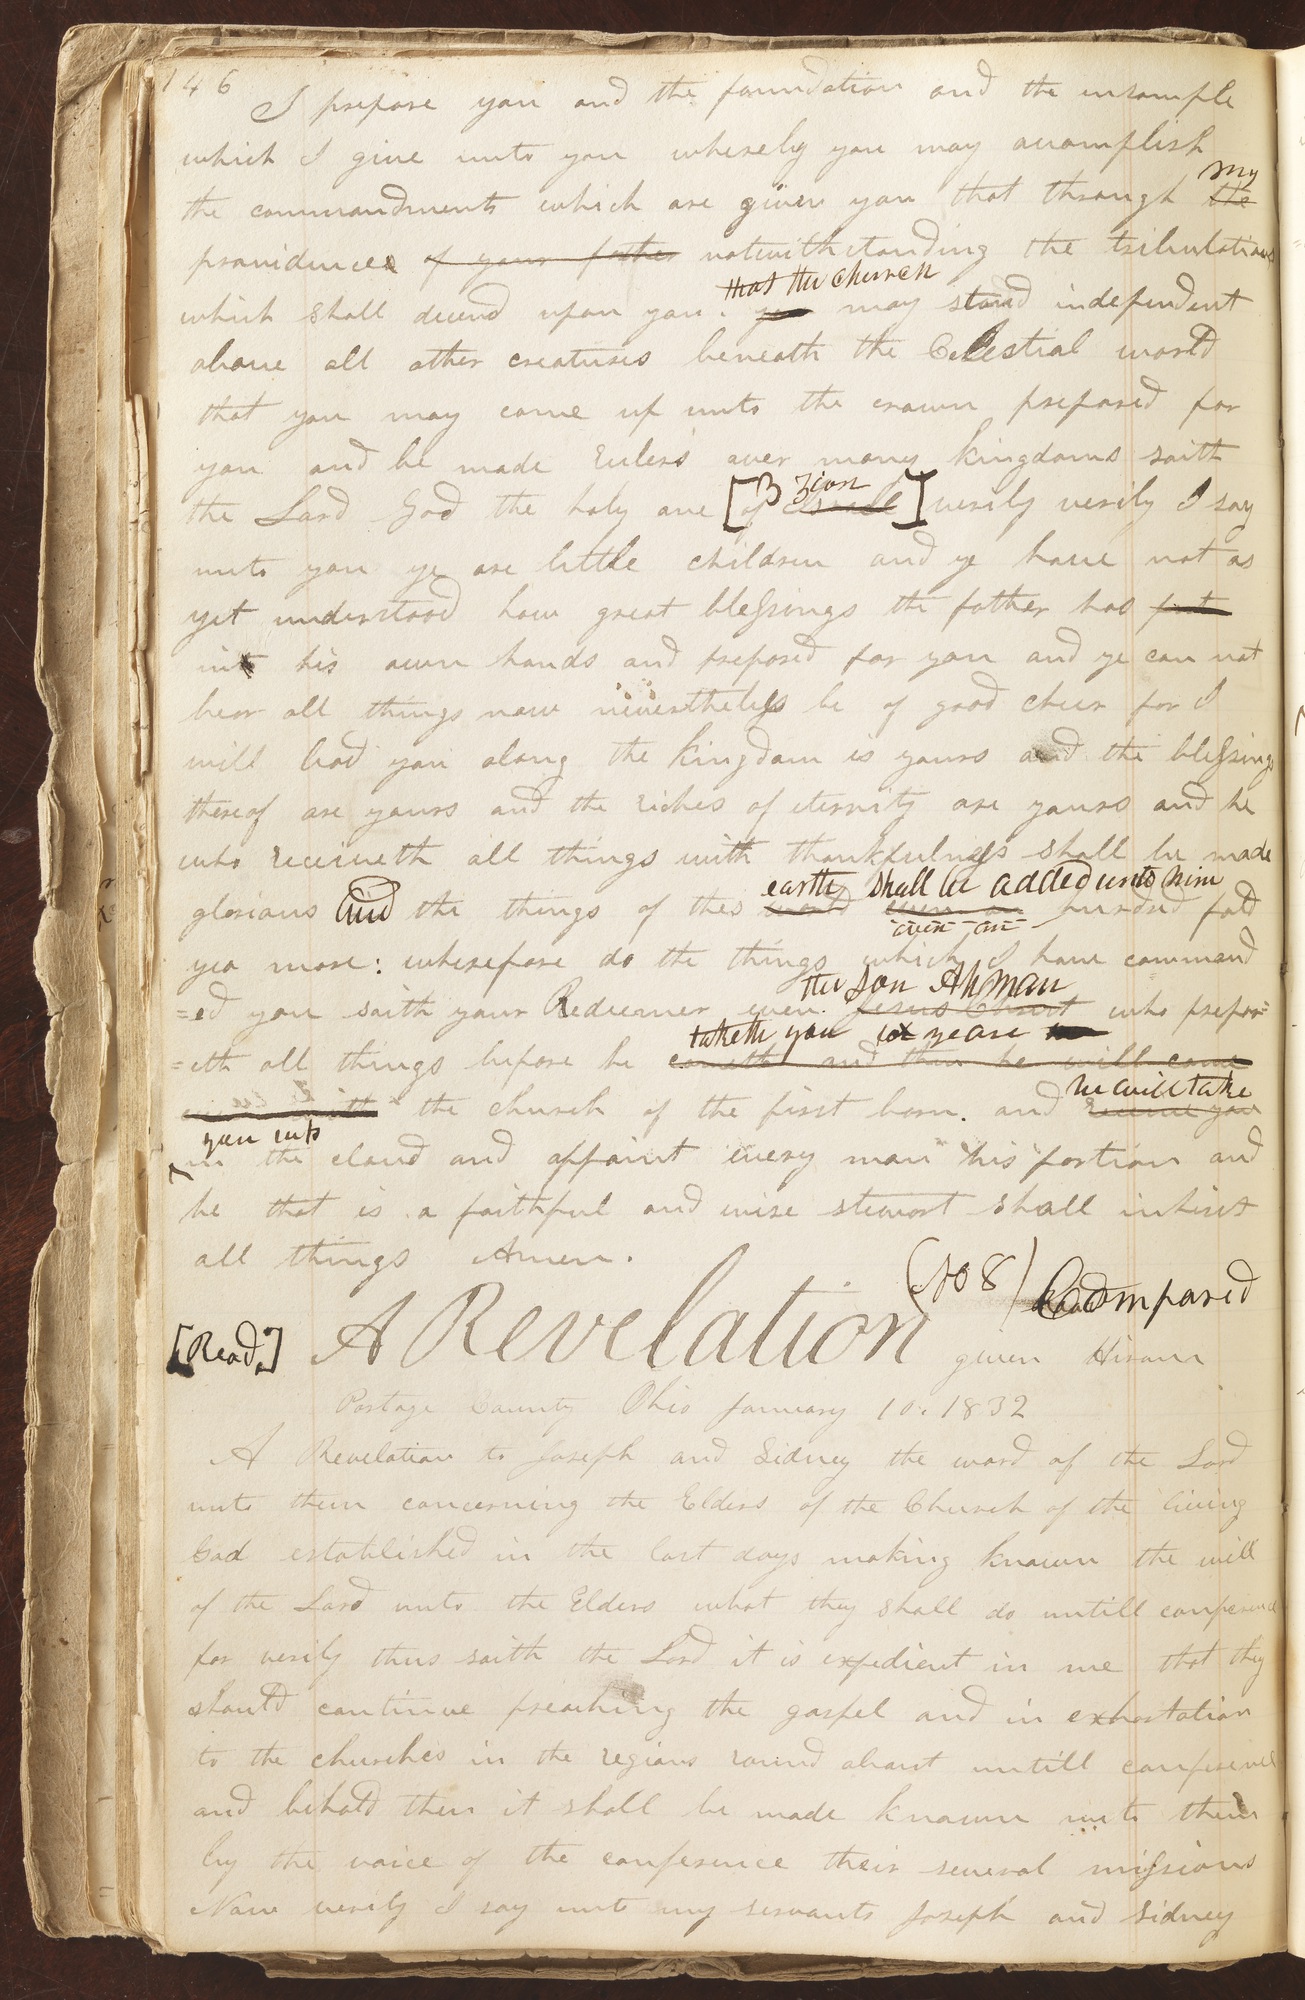 146
I prepare you and the foundation and the ensample
which I give unto you whereby you may accomplish
my
the commandments which are given you that through the
providences of your father notwithstanding the tribulations
that the church
which shall decend upon you. ye may stand independent
above all other creatures beneath the Celestial world
that you may come up unto the crown prepared for
you and be made rulers over many kingdoms saith
3 zion
the Lord God the holy one [of Israel] verily verily I say
unto you ye are little children and ye have not as
yet understood how great blessings the father has put
in his own hands and prepared for you and ye can not
bear all things now nevertheless be of good cheer for I
will lead you along the kingdom is yours and the blessings
thereof are yours and the riches of eternity are yours and he
who receiveth all things with thankfulness shall be made
earth shall be added unto him
glorious And the things of this world even an hundred fold
even an
yea more: wherefore do the things which I have command
the Son Ahman
=ed you saith your Redeemer even Jesus Christ who prepar=
taketh you
=eth all things before he cometh and then he will come
he will take
with the church of the first born. and receive you
you into
in the cloud and appoint every man his portion and
he that is a faithful and wise stewart shall inherit
all things Amen.
(No 8) Compared
[Read.] A Revelation given Hiram
Portage County Ohio January 10. 1832
A Revelation to Joseph and Sidney the word of the Lord
unto them concerning the Elders of the Church of the living
God established in the last days making known the will
of the Lord unto the Elders what they shall do untill conference
for verily thus saith the Lord it is expedient in me that they
should continue preaching the gospel and in exhortation
to the churches in the regions round about untill conference
and behold then it shall be made known unto them
by the voice of the conference their several missions
Now verily I say unto my servants Joseph and Sidney